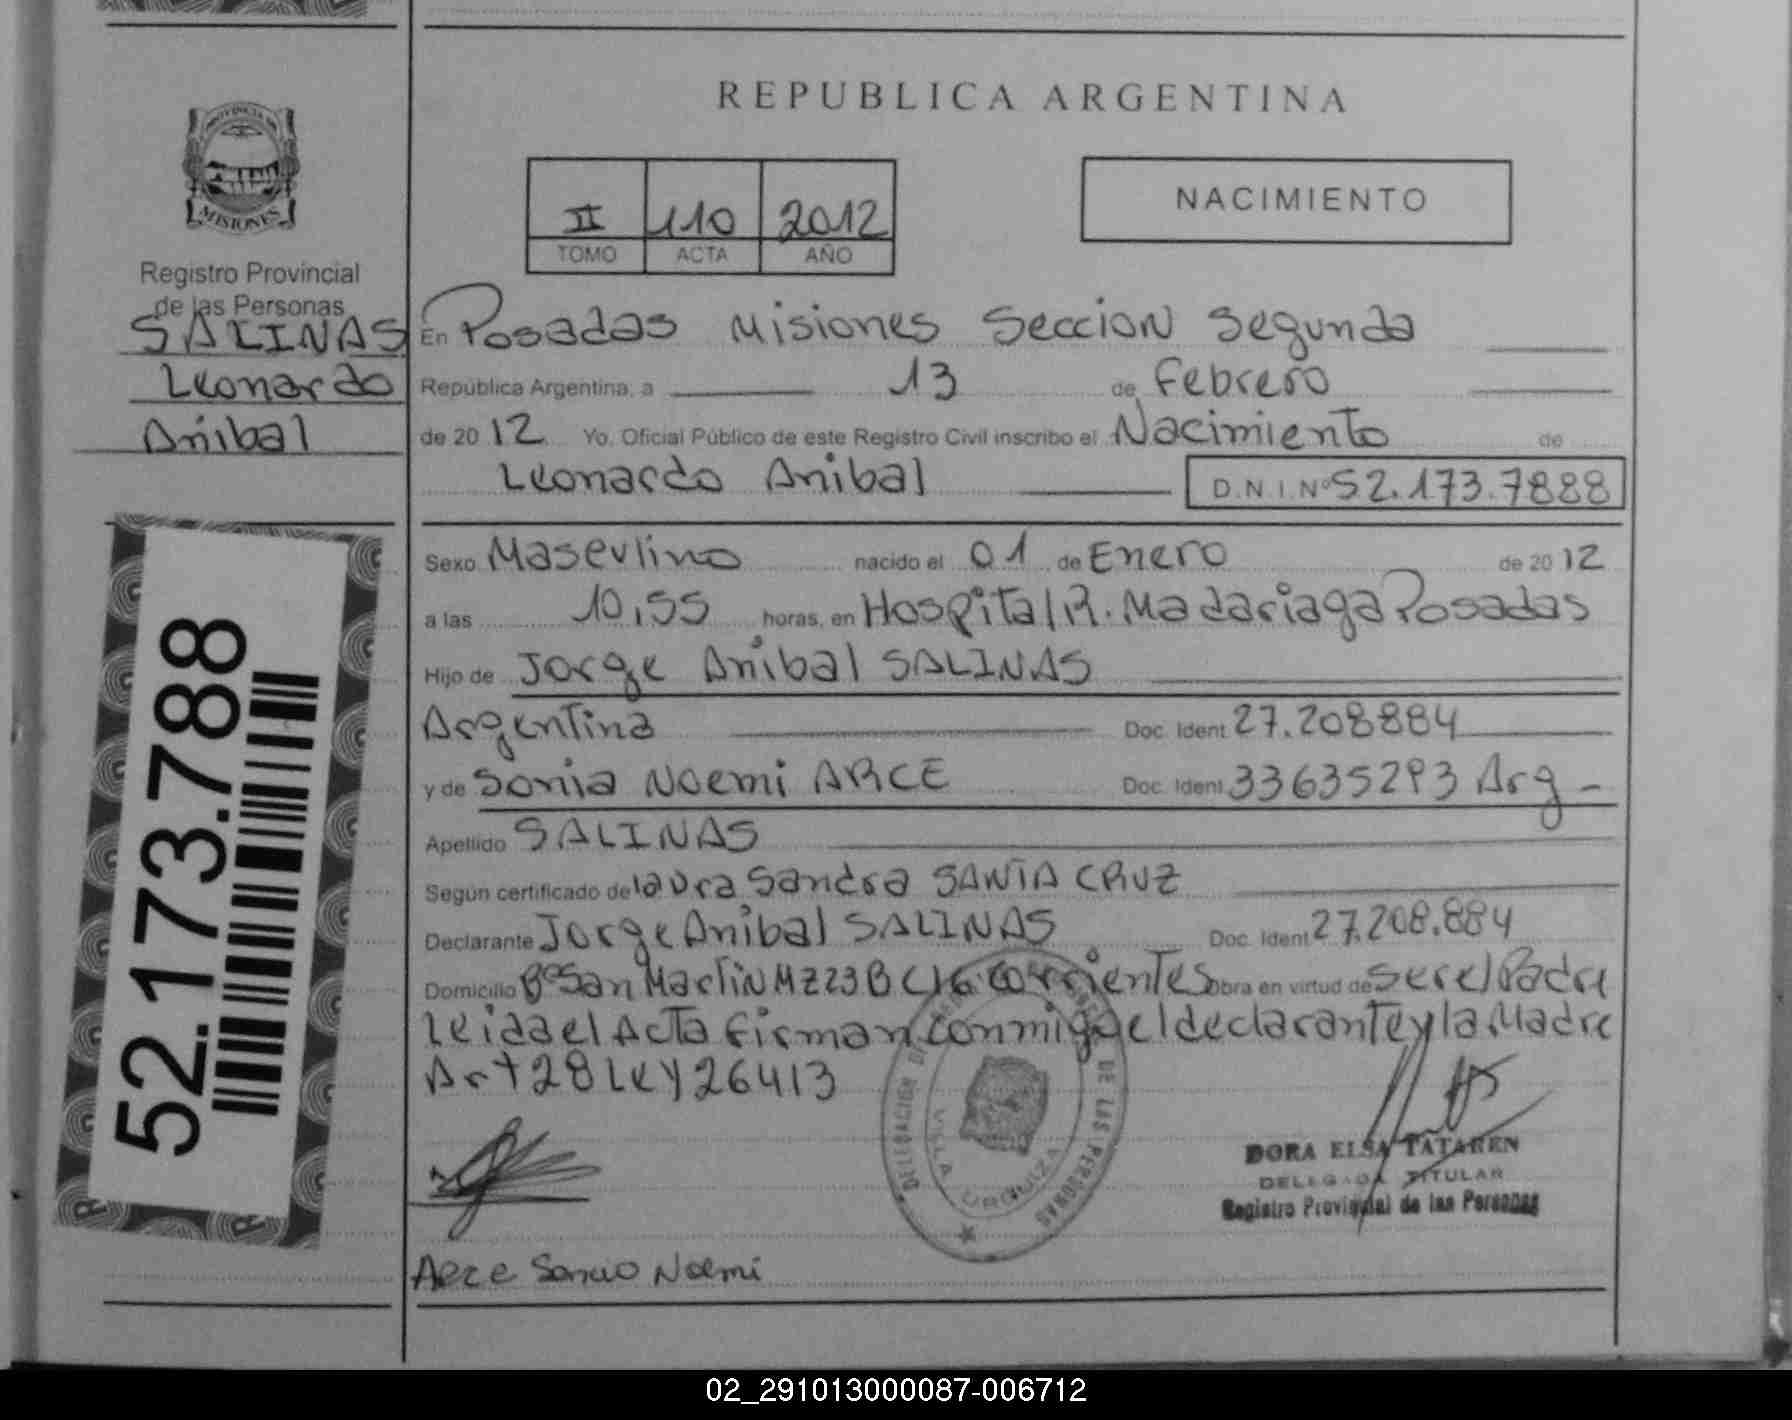 REPUBLICA ARGENTINA
PROVINCIA DE
MISIONES
II 110 2012
TOMO ACTA AÑO
NACIMIENTO
Registro Provincial
de las Personas
SALINAS
Leonardo
Anibal
52.173.788
En Posadas Misiones Seccion Segunda
República Argentina, a 13 de Febrero
de 2012 Yo, Oficial Público de este Registro Civil inscribo el Nacimiento de
Leonardo Anibal D.N.I.Nº52.173.7888
Sexo Masculino nacido el 01 de Enero de 2012
a las 10,55 horas, en Hospital R. Madariaga Posadas
Hijo de Jorge Anibal SALINAS
Argentina Doc. Ident 27.208884
y de Sonia Noemi ARCE Doc. Ident 33635293 Arg -
Apellido SALINAS
Según certificado de laura Sandra SANTA CRUZ
Declarante Jorge Anibal SALINAS Doc. Ident 27.208.884
Domicilio Bº San Martin MZ 23 B C/6 Corrientes obra en virtud de ser el Padre
Leida el Acta firman conmigo el declarante y la Madre
Art 28 Ley 26413
DELEGACION DE LAS PERSONAS
VILLA URQUIZA
DORA ELSA TATAREN
DELEGADA TITULAR
Registro Provincial de las Personas
Arce Sonia Noemi
02_291013000087-006712